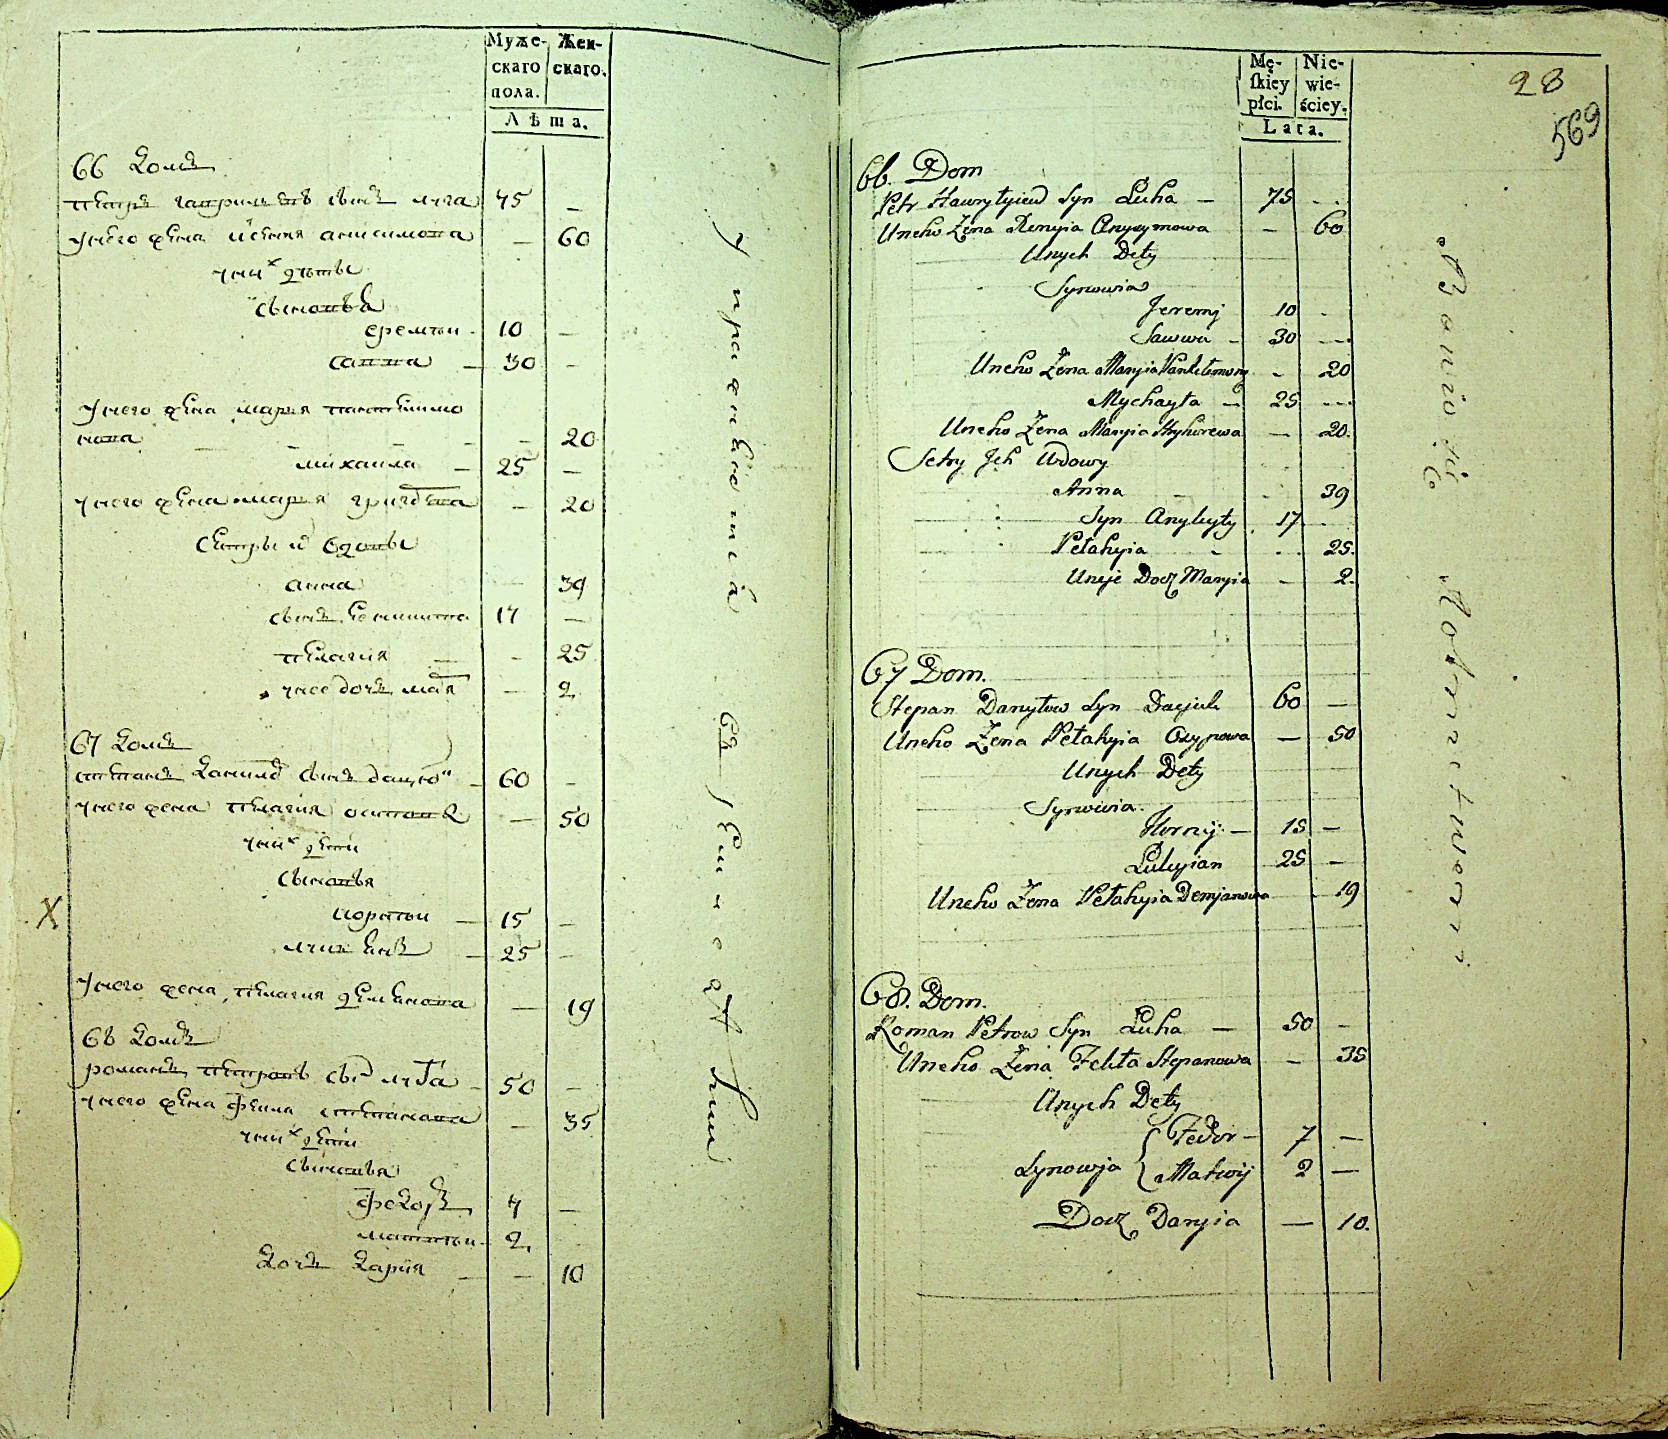 Муже-
скаго
пола.
Жен-
скаго.
Лѣта.
66 домъ
петръ гавриловъ сынъ луга 75 -
унего жена ксения анисимова - 60
уних дѣти
сыновья
еремѣи - 10 -
савва - 30 -
унего жена марья пантелимо
нова - - - - - 20
михаила - 25 -
унего жена марья григорева - 20
сестры и вдовы
анна - 39
сынъ 17 -
пелагия - - 25
унее дочь мария - 2
67 домъ
степанъ данилов сынъ дацко - 60 -
унего жена пелагия - 50
уних дети
сыновья
корнѣи - 15 -
лукиянъ - 25 -
унего жена пелагия демянова - 19
68 домъ
романъ петровъ сынъ луга - 50 -
унего жена фекла степанова - 35
уних дети
сыновья
федоръ 7 -
матвѣи - 2, -
дочь дария - - 10
Упражняется
въ земледѣлии
28
569
Mę-
ſkiey
płci.
Nie-
wie-
ściey.
Lata.
66. Dom
Petr Hawryłyiew Syn Łuha - 75 - .
Uneho Żena Xenyia Anysymowa - 60
Unych Dety
Synowia
Jeremj 10 -
Sawwa - 30 ---
Uneho Żena Maryia Pantelimony - 20
Mychayła - 25 ---
Uneho Żena Maryia Hryhorewa - 20.
Setry Jch Wdowy
Anna - 39
Syn 17 -
Pełahyia - - . 25.
Uneje Docz Maryia - 2.
67 Dom.
Stepan Danyłow Syn Dacjuk 60 -
Uneho Żena Pełahyia Osypowa - 50
Unych Dety
Synowia.
Kornij - 15 -
Łukyian 25 -
Uneho Żena Pełahyia Demjanowa - 19
68. Dom.
Roman Petrow Syn Łuha - 50 -
Uneho Żena Fekła Stepanowa - 35
Unych Dety
Synowja { Fedor - 7 -
Matwij 2 -
Docz Daryia - 10.